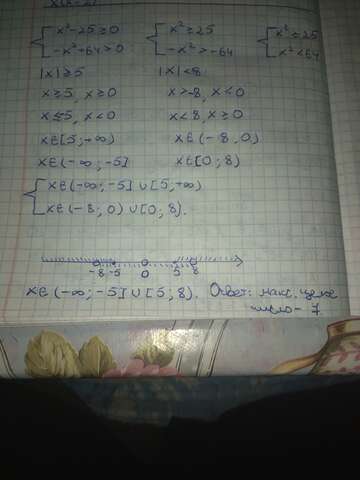 { x²-25≥0 { x²≥25 { x²≥25
{ -x²+64>0 { -x²>-64 { x²<64
|x|≥5 |x|<8
x≥5, x≥0 x>-8, x<0
x≤-5, x<0 x<8, x≥0
x∈[5;+∞) x∈(-8,0)
x∈(-∞;-5] x∈[0;8)
{ x∈(-∞;-5]∪[5,+∞)
{ x∈(-8;0)∪[0;8).
-8 -5 0 5 8
x∈(-∞;-5]∪[5;8). Ответ: макс. целое
число - 7